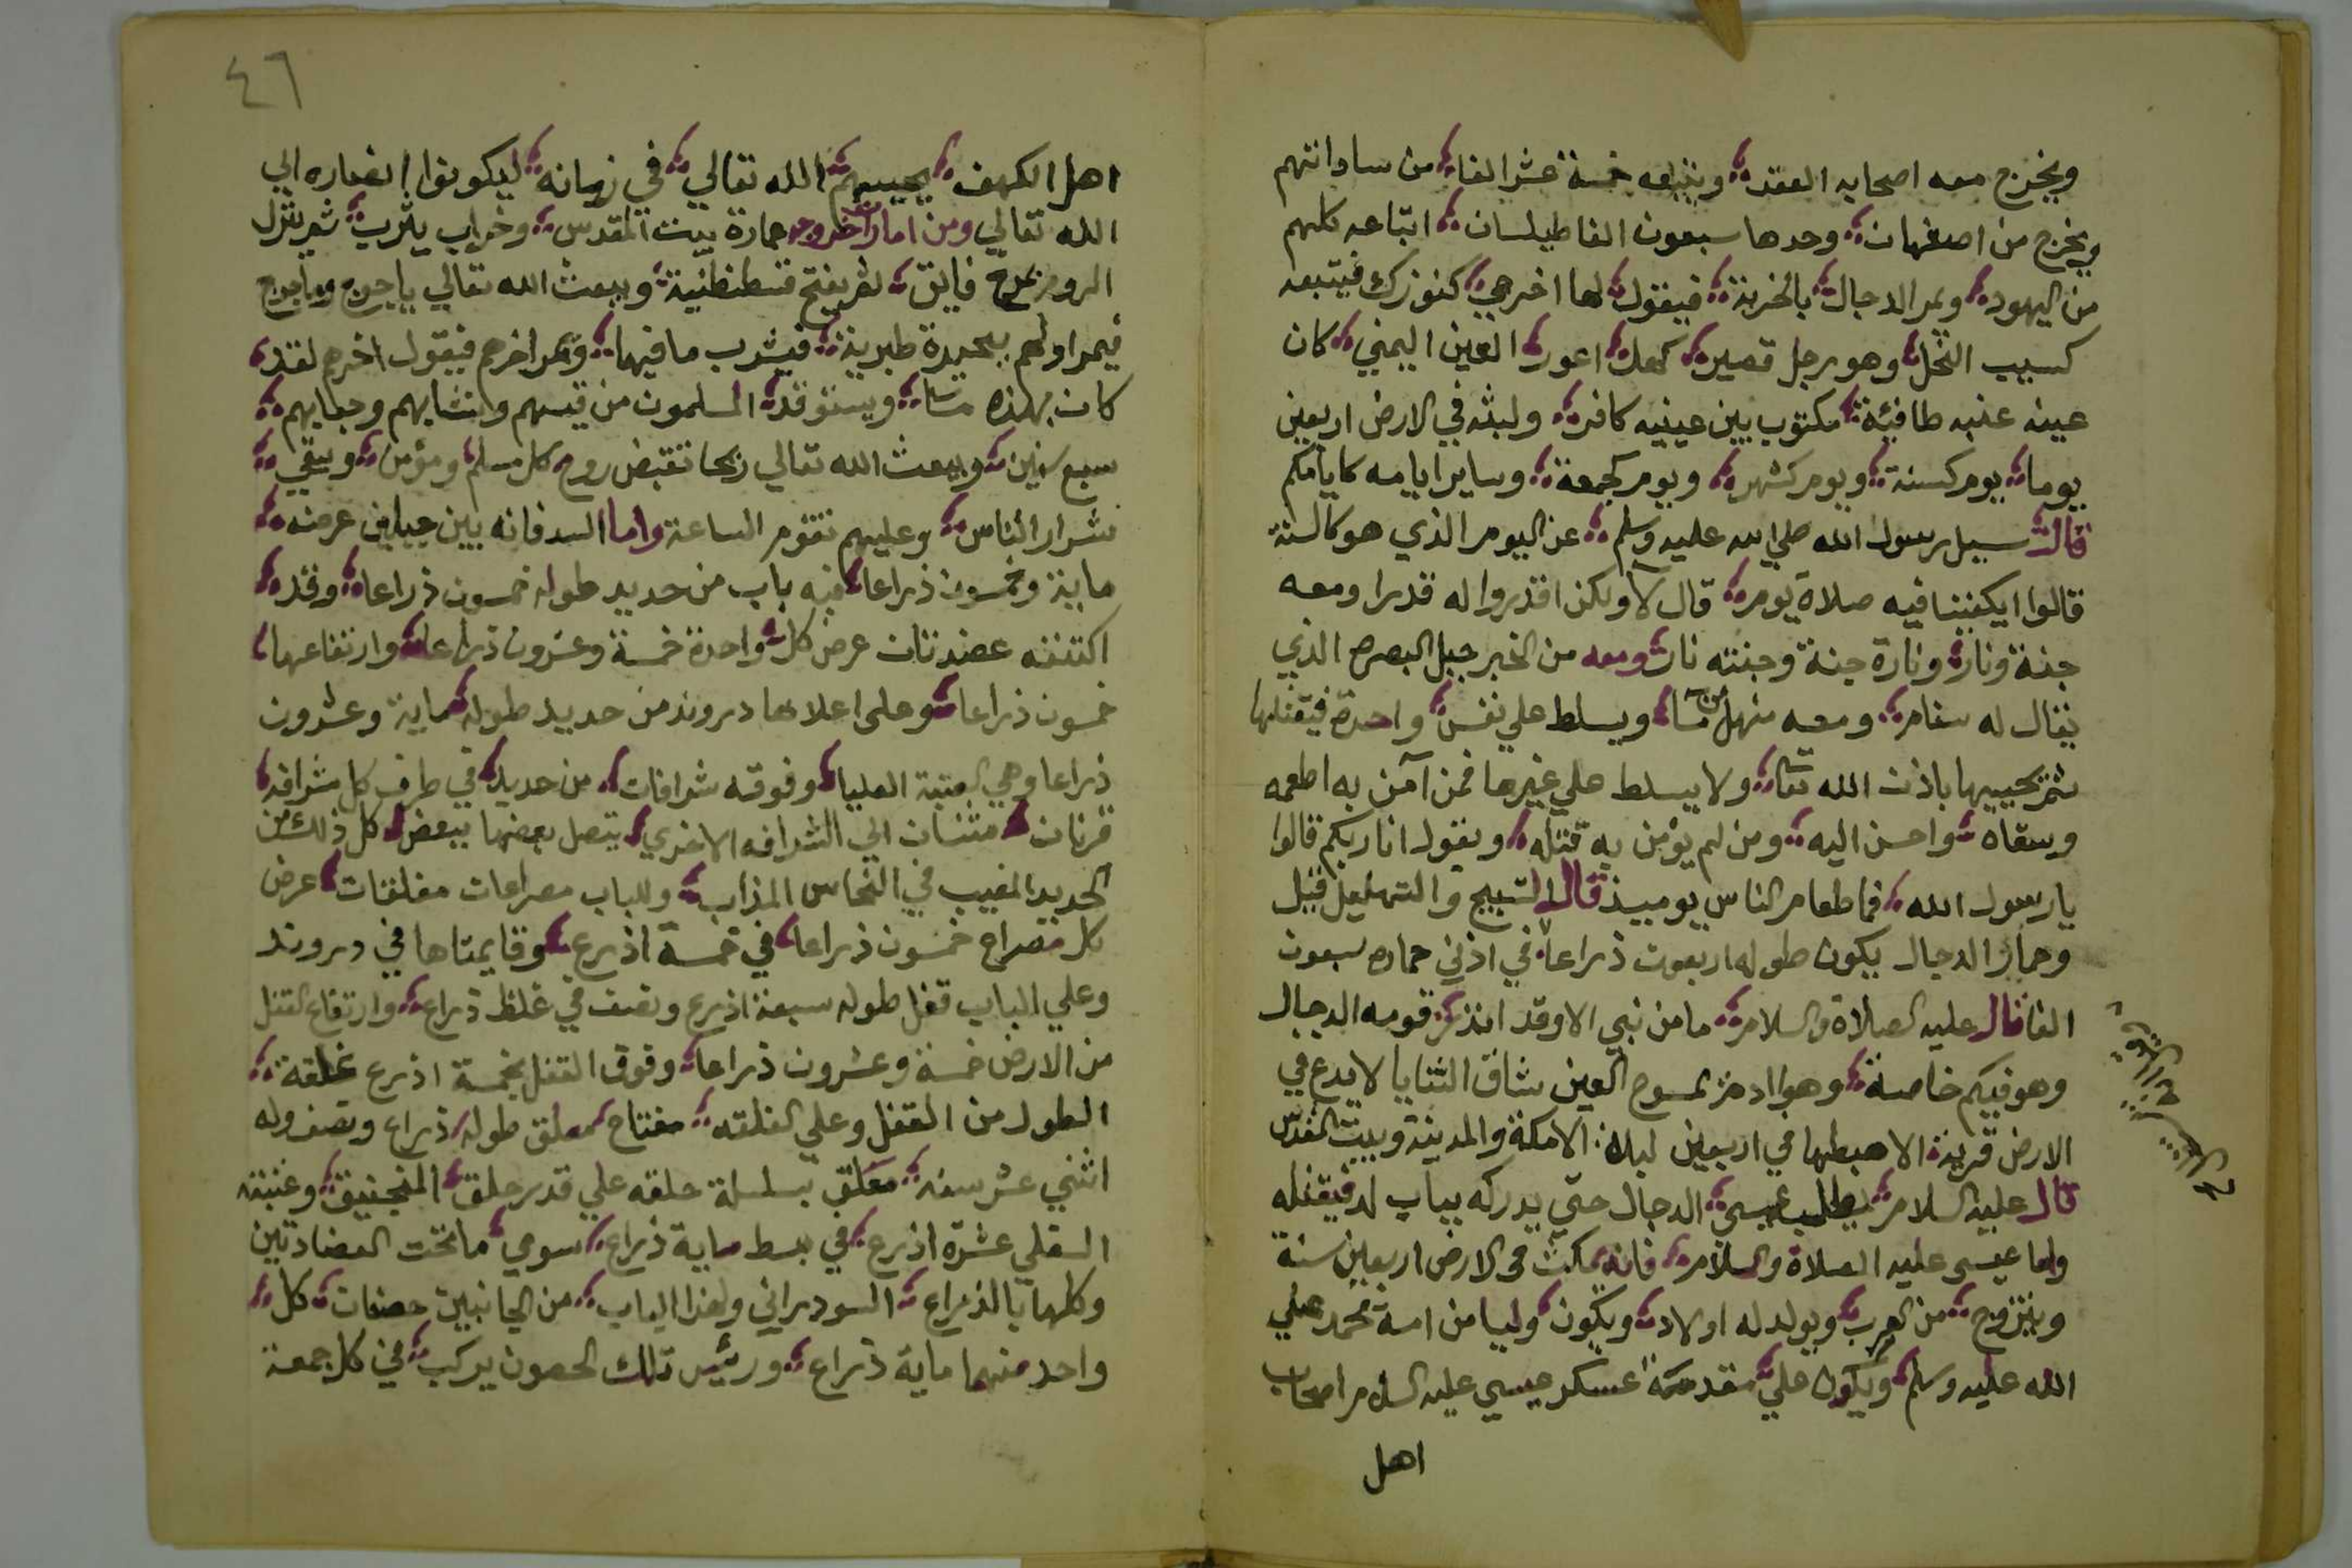 ويخرج معه اصحابه العقد ويتبعه خمسة عشر الفا من ساداتهم
ويخرج من اصفهان وحدها سبعون الفا طيلسان اتباعه كلهم
من اليهود ويمر الدجال بالخربة فيقول لها اخرجي كنوزك فيتبعه
كسبيب النحل وهو رجل قصير كهل اعور العين اليمني كان
عينه عنبه طافئة مكتوب بين عينيه كافر ولبثه في الارض اربعين
يوما يوم كسنة ويوم كشهر ويوم كجمعة وساير ايامه كايامكم
قال سيل رسول الله صلي الله عليه وسلم عن اليوم الذي هو كالسنة
قالوا ايكفينا فيه صلاة يوم قال لا ولكن اقدروا له قدرا ومعه
جنة ونار وناره جنة وجنته نار ومعه من الخبر جبل البصره الذي
يقال له سنام ومعه منهل من ما ويسلط علي نفس واحدة فيقتلها
ثم يحييها باذن الله تعا ولا يسلط علي غيرها فمن آمن به اطعمه
وسقاه واحسن اليه ومن لم يؤمن به قتله ويقول انا ربكم قالوا
يا رسول الله فما طعام الناس يوميذ قال التسبيح والتهليل قيل
وحمار الدجال يكون طوله اربعون ذراعا في اذني حماره سبعون
الفا قال عليه الصلاة والسلام ما من نبي الا وقد انذر قومه الدجال
وهو فيكم خاصة وهو ادم ممسوح العين شاق الثنايا لا يدع في
الارض قرية الا هبطها في اربعين ليلة الا مكة والمدينة وبيت المقدس
قال عليه السلام يطلب عيسى الدجال حتي يدركه بباب لد فيقتله
واما عيسى عليه الصلاة والسلام فانه يمكث في الارض اربعين سنة
ويتزوج من العرب ويولد له اولاد ويكون وليا من امة محمد صلي
الله عليه وسلم ويكون علي مقدمة عسكر عيسي عليه السلام اصحاب
اهل
٤٦
اهل الكهف يحييهم الله تعالي في زمانه ليكونوا انصاره الي
الله تعالي ومن امارات خروجه عمارة بيت المقدس وخراب يثرب ثم ينزل
الروم بمرج فايق ثم يفتح قسطنطنية ويبعث الله تعالي ياجوج وماجوج
فيمر اولهم ببحيرة طبرية فيشرب ما فيها ويمر اخرهم فيقول اخرهم لقد
كان بهذه ما ويستوقد المسلمون من قسيهم ونشابهم وجعابهم
سبع سنين ويبعث الله تعالي ريحا تقبض روح كل مسلم ومؤمن ويبقي
شرار الناس وعليهم تقوم الساعة واما السد فانه بين جبلين عرضه
ماية وخمسون ذراعا فيه باب من حديد طوله خمسون ذراعا وقد
اكتنفه عضدتان عرض كل واحدة خمسة وعشرون ذراعا وارتفاعها
خمسون ذراعا وعلى اعلاها دروند من حديد طوله ماية وعشرون
ذراعا وهي العتبة العليا وفوقه شرافات من حديد في طرف كل شرافه
قرنان مثنيان الي الشرافه الاخري يتصل بعضها ببعض كل ذلك من
الحديد المغيب في النحاس المذاب وللباب مصراعان مغلقان عرض
كل مصراع خمسون ذراعا في خمسة اذرع وقايمتاها في دروند
وعلي الباب قفل طوله سبعة اذرع ونصف في غلظ ذراع وارتفاع القفل
من الارض خمسة وعشرون ذراعا وفوق القفل بخمسة اذرع غلقة
الطول من القفل وعلي الغلقه مفتاح معلق طوله ذراع ونصف وله
اثني عشر سنه معلق بسلسلة حلقه علي قدر حلق المنجنيق وعتبته
السفلي عشرة اذرع في بسط ماية ذراع سوي ما تحت العضادتين
وكلها بالذراع السودراني ولهذا الباب من الجانبين حصنان كل
واحد منهما ماية ذراع ورئيس تلك الحصون يركب في كل جمعة